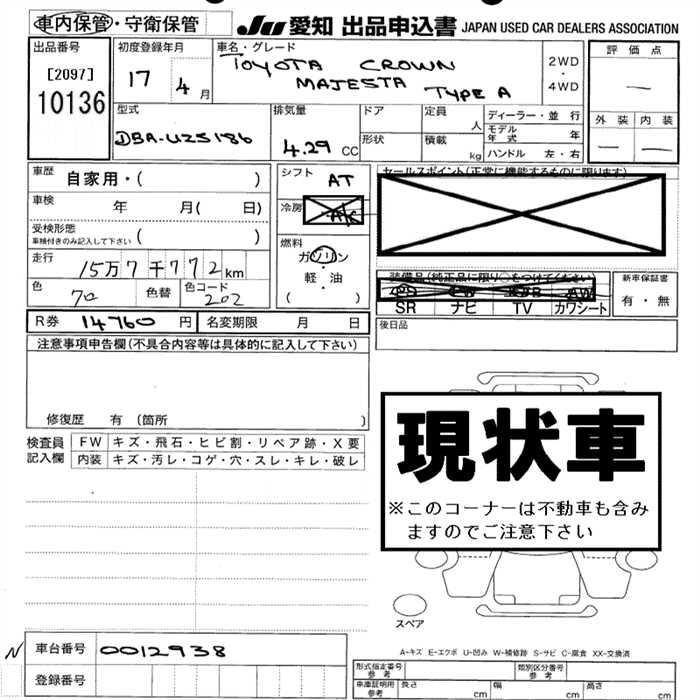 車内保管・守衛保管
JU 愛知 出品申込書 JAPAN USED CAR DEALERS ASSOCIATION
出品番号
[2097]
10136
初度登録年月
17 4月
車名・グレード
TOYOTA CROWN
MAJESTA TYPE A
2WD
・
4WD
評価点
―
外装 内装
― ―
型式
DBA-UZS186
排気量
4.29 CC
ドア
形状
定員
人
積載
kg
ディーラー・並行
モデル年式 年
ハンドル 左・右
車歴
自家用・( )
車検
年 月( 日)
受検形態
車検付きのみ記入して下さい ( )
走行
15万7千772km
色
70
色替
色コード
202
シフト
AT
冷房
A/C
燃料
ガソリン
・
軽・油
( )
セールスポイント(正常に機能するものに限ります)
装備品(純正品に限り○をつけてください)
SR ナビ TV カワシート
新車保証書
有・無
R券 14760円
名変期限 月 日
後日品
注意事項申告欄(不具合内容等は具体的に記入して下さい)
修復歴 有 (箇所 )
検査員
記入欄
FW キズ・飛石・ヒビ割・リペア跡・X要
内装 キズ・汚レ・コゲ・穴・スレ・キレ・破レ
現状車
※このコーナーは不動車も含み
ますのでご注意下さい
スペア
A-キズ E-エクボ U-凹み W-補修跡 S-サビ C-腐食 XX-交換済
N
車台番号 0012938
登録番号
形式指定番号
参考
類別区分番号
参考
車庫証明用
参考
長さ cm
幅 cm
高さ cm